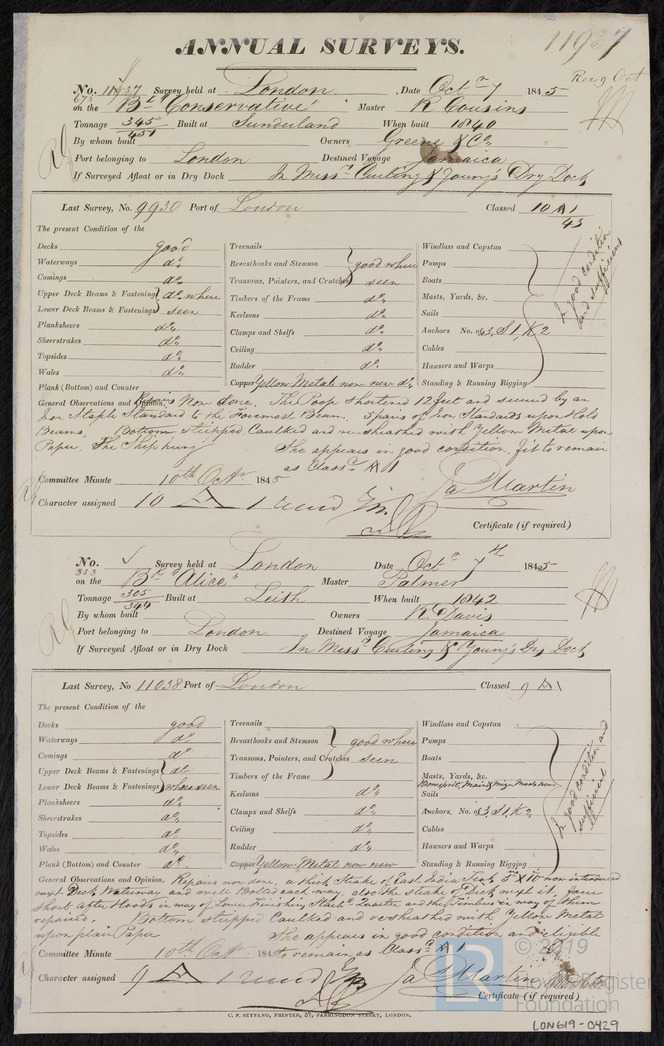 ANNUAL SURVEYS.
11937
No. 11937 Survey held at London, Date Octr 7 1845
Rec 9 Oct
675
on the Bk "Conservative" Master R Cousins
Tonnage 345 / 451 Built at Sunderland When built 1840
By whom built Owners Greene & Co.
Port belonging to London Destined Voyage Jamaica
If Surveyed Afloat or in Dry Dock In Messrs Curling & Young's Dry Dock
Last Survey, No. 9930 Port of London Classed 10 A 1
43
The present Condition of the
Decks good Treenails Windlass and Capstan
Waterways do. Breasthooks and Stemson good where Pumps
Comings do. Transoms, Pointers, and Crutches seen Boats
Upper Deck Beams & Fastening do. where Timbers of the Frame do. Masts, Yards, &c.
Lower Deck Beams & Fastening seen Keelsons do. Sails
Plansheers do. Clamps and Shelfs do. Anchors No. of 3, S 1, K 2
Sheerstrakes do. Ceiling do. Cables
Topsides do. Rudder do. Hawsers and Warps
Wales do. Copper Yellow Metal now new do. Standing & Running Rigging
Plank (Bottom) and Counter
In good condition
and sufficient
General Observations and Repairs Now done. The Poop shortened 12 feet and secured by an
Iron Staple Standard to the Foremost Beam. 5 pairs of Iron Standards upon Hold
Beams. Bottom stripped Caulked and resheathed with Yellow Metal upon
Paper. The Ship hung She appears in good condition, fit to remain
as Classd A 1
Committee Minute 10th Octr 1845
Ja Martin
Character assigned 10 A 1
Certificate (if required)
No. Survey held at London Date Octr 7th 1845
353
on the Bk "Alice" Master Palmer
Tonnage 305 / 344 Built at Leith When built 1842
By whom built Owners R. Davis
Port belonging to London Destined Voyage Jamaica
If Surveyed Afloat or in Dry Dock In Messrs Curling & Young's Dry Dock
Last Survey, No 11038 Port of London Classed 9 A 1
The present Condition of the
Decks good Treenails Windlass and Capstan
Waterways do. Breasthooks and Stemson good where Pumps
Comings do. Transoms, Pointers, and Crutches seen Boats
Upper Deck Beams & Fastenings do. Timbers of the Frame Masts, Yards, &c.
Lower Deck Beams & Fastening where seen Keelsons do. Bowsprit, Main & Mizn Masts new Sails
Plansheers do. Clamps and Shelfs do. Anchors, No. of 3, S 1, K 2
Sheerstrakes do. Ceiling do. Cables
Topsides do. Rudder do. Hawsers and Warps
Wales do. Copper Yellow Metal now new Standing & Running Rigging
Plank (Bottom) and Counter do.
In good condition and
sufficient
General Observations and Opinion. Repairs now done, a thick Strake of East India Teak now introduced
next Deck Waterway and well Bolted each way, also the Strake of Deck next it, four
Short after Hoods in way of Lower Finishing Starbd Quarter and the Timbers in way of them
repaired. Bottom stripped Caulked and resheathed with Yellow Metal
upon plain Paper She appears in good condition and eligible
Committee Minute 10th Octr 184 to remain as Classd A 1
Character assigned 9 A 1 Ja Martin
Certificate (if required)
C. F. SEYFANG, PRINTER, 57, FARRINGDON STREET, LONDON.
LR © 2019
Lloyd's Register
Foundation
LON619-0429